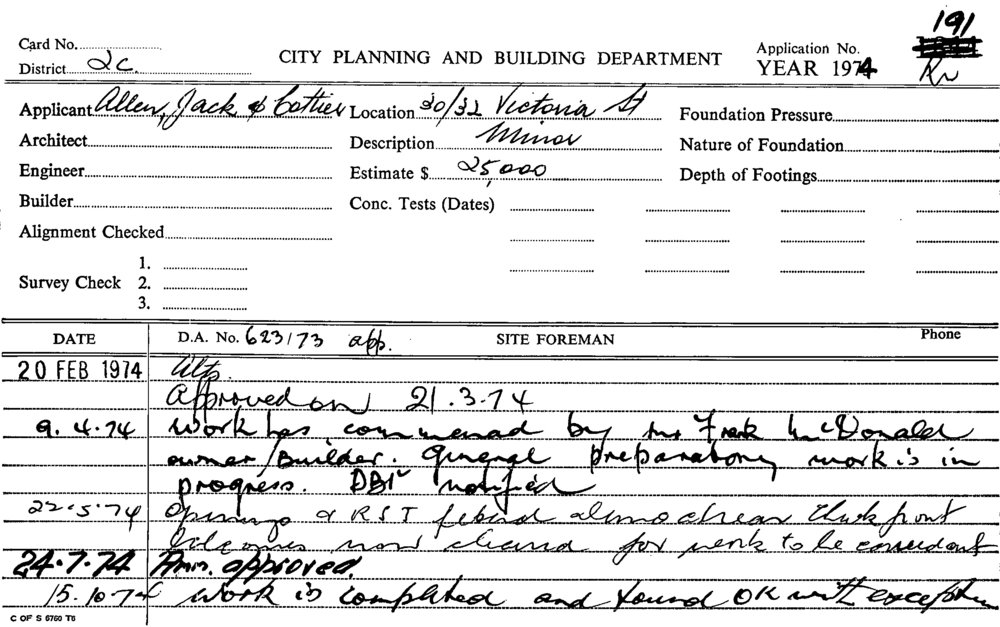 191
Card No.
District 2C.
CITY PLANNING AND BUILDING DEPARTMENT
Application No.
YEAR 1974
Applicant Allen, Jack & Cottier
Location 30/32 Victoria St
Foundation Pressure
Architect
Description Minor
Nature of Foundation
Engineer
Estimate $ 25,000
Depth of Footings
Builder
Conc. Tests (Dates)
Alignment Checked
Survey Check 1.
2.
3.
DATE D.A. No. 623/73 app. SITE FOREMAN Phone
20 FEB 1974 Alts
Approved on 21.3.74
9.4.74 Work has commenced by Mr Frank McDonald
owner/Builder. General preparatory work is in
progress. notified
22.5.74 Openings & RSJ front
now for work to be
24.7.74 Am. approved.
15.10.74 Work is completed and found OK with exception
C OF S 6760 T6